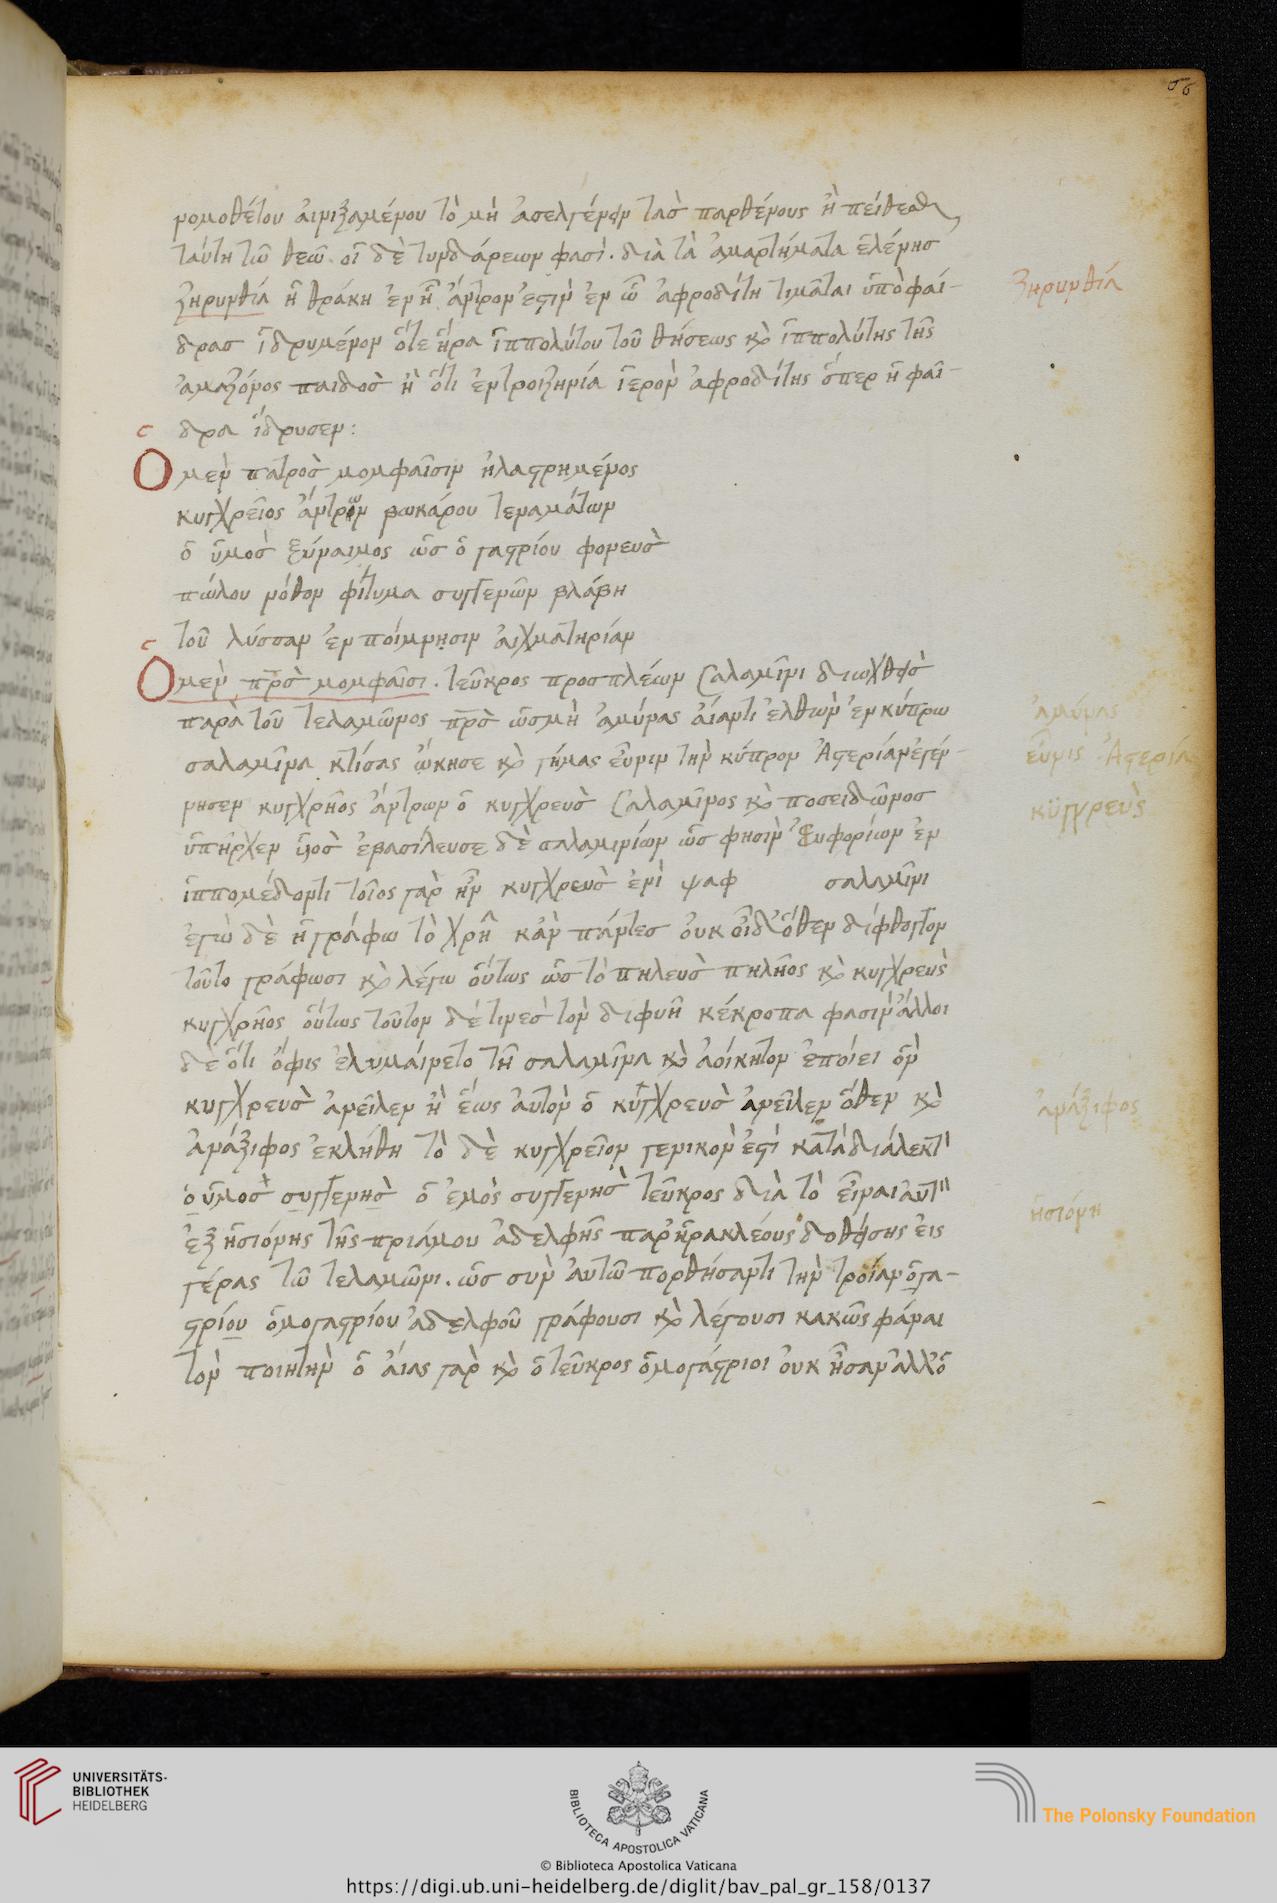 νομοθέτου αἰνιξαμένου τὸ μὴ ἀσελγένειν τὰσ παρθένους ἢ πείθεσθαι
ταύτη τῶ θεῶ. οἱ δὲ τυνδάρεων φασὶ. διὰ τὰ ἁμαρτήματα ἑλένησ
ζηρυνθία ἡ θράκη ἐν ἧ ἄντρον ἐστὶν ἐν ὧ ἀφροδίτη τιμᾶται ὑπὸ φαί-
δρασ ἱδρυμένον ὅτε ἤρα ἱππολύτου τοῦ θήσεως κὸ ἱππολύτης τῆς
ἀμαζόνος παιδοσ ἢ ὅτι ἐν τροιζηνία ἱερὸν ἀφροδίτης ὅπερ ἡ φαῖ-
δρα ἵδρυσεν:
Ὁ μεν πατροσ μομφαῖσιν ἠλαστρημένος
κυχρεῖος ἄντρων βωκάρου τε ναμάτων
ὁ ὑμοσ ξύναιμος ὡσ ὁ γαστρίου φονευσ
πώλου νόθον φίτυμα συγγενῶν βλάβη
τοῦ λύσσαν ἐν ποίμνησιν αἰχματηρίαν
Ὁ μεν πρσ μομφαῖσι. τεῦκρος προσπλέων σαλαμῖνι διωχθεὶσ
παρὰ τοῦ τελαμῶνος πρσ ὡσ μὴ ἀμύνας αἴαντι ἐλθὼν ἐν κύπρω
σαλαμῖνα κτίσας ᾤκησε κὸ γήμας εὖνιν τὴν κύπρου Ἀστερίαν ἐγέν-
νησεν κυγχρῆος ἄντρων ὁ κυγχρευσ σαλαμῖνος κὸ ποσειδῶνοσ
ὑπῆρχεν υἱοσ ἐβασίλευσε δὲ σαλαμινίων ὡσ φησὶν Εὐφορίων ἐν
ἱππομέδοντι τοῖος γαρ ἦν κυγχρευσ ἐνὶ ψαφ σαλαμῖνι
ἐγὼ δὲ ἢ γράφω τὸ χρῆ κἂν πάντεσ οὐκ οἶδ' ὅθεν δίφθογγον
τοῦτο γράφωσι κὸ λέγω οὕτως ὡσ τὸ πηλευσ πηλῆος κὸ κυγχρευς
κυγχρῆος οὕτως τοῦτον δέ τινεσ τὸν διφυῆ κέκροπα φασιν ἄλλοι
δὲ ὅτι ὄφις ἐλυμαίνετο τῆ σαλαμῖνα κὸ ἀοίκητον ἐποίει ὃν
κυγχρευσ ἀνεῖλεν ἢ ἕως αὐτὸν ὁ κυγχρευσ ἀνεῖλεν ὅθεν κὸ
ἀνάξιφος ἐκλήθη τὸ δὲ κυγχρεῖον γενικὸν ἐστὶ κατὰ διάλεκτ
ὁ ὑμοσ συγγενησ ὁ ἐμὸς συγγενησ τεῦκρος διὰ τὸ εἶναι αὐτ
ἐξ ἡσιόνης τῆς πριάμου ἀδελφῆς παρ' ἡρακλέους δοθείσης εἰς
γέρας τῶ τελαμῶνι. ὡσ συν αὐτῶ πορθήσαντι τὴν τροίαν ὁ γα-
στρίου ὁμογαστρίου ἀδελφοῦ γράφουσι κὸ λέγουσι κακῶς φάναι
τὸν ποιητὴν ὁ αἴας γαρ κὸ ὁ τεῦκρος ὁμογάστριοι οὐκ ἦσαν ἀλλ' ὁ
ζηρυνθία
ἀμύνας
εὖνις Ἀστερία
κυγχρεὺς
ἀνάξιφος
ἡσιόνη
UNIVERSITÄTS-
BIBLIOTHEK
HEIDELBERG
BIBLIOTECA APOSTOLICA VATICANA
© Biblioteca Apostolica Vaticana
The Polonsky Foundation
https://digi.ub.uni-heidelberg.de/diglit/bav_pal_gr_158/0137